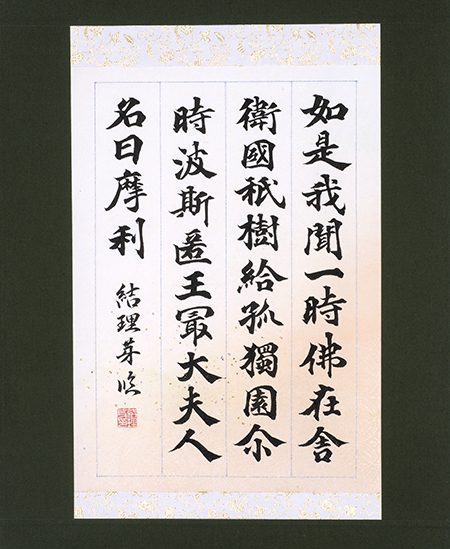 如是我聞一時佛在舍
衛國祇樹給孤獨園尒
時波斯匿王冣大夫人
名曰摩利
結理芽臨